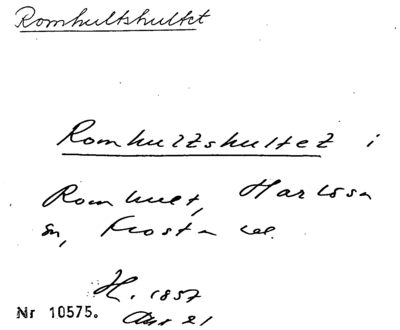 Romhultshultet
Romhultshultet i
Romhult, Harlösa
sn, Frosta hd.
H. 1857
Nr 10575. Akt 21